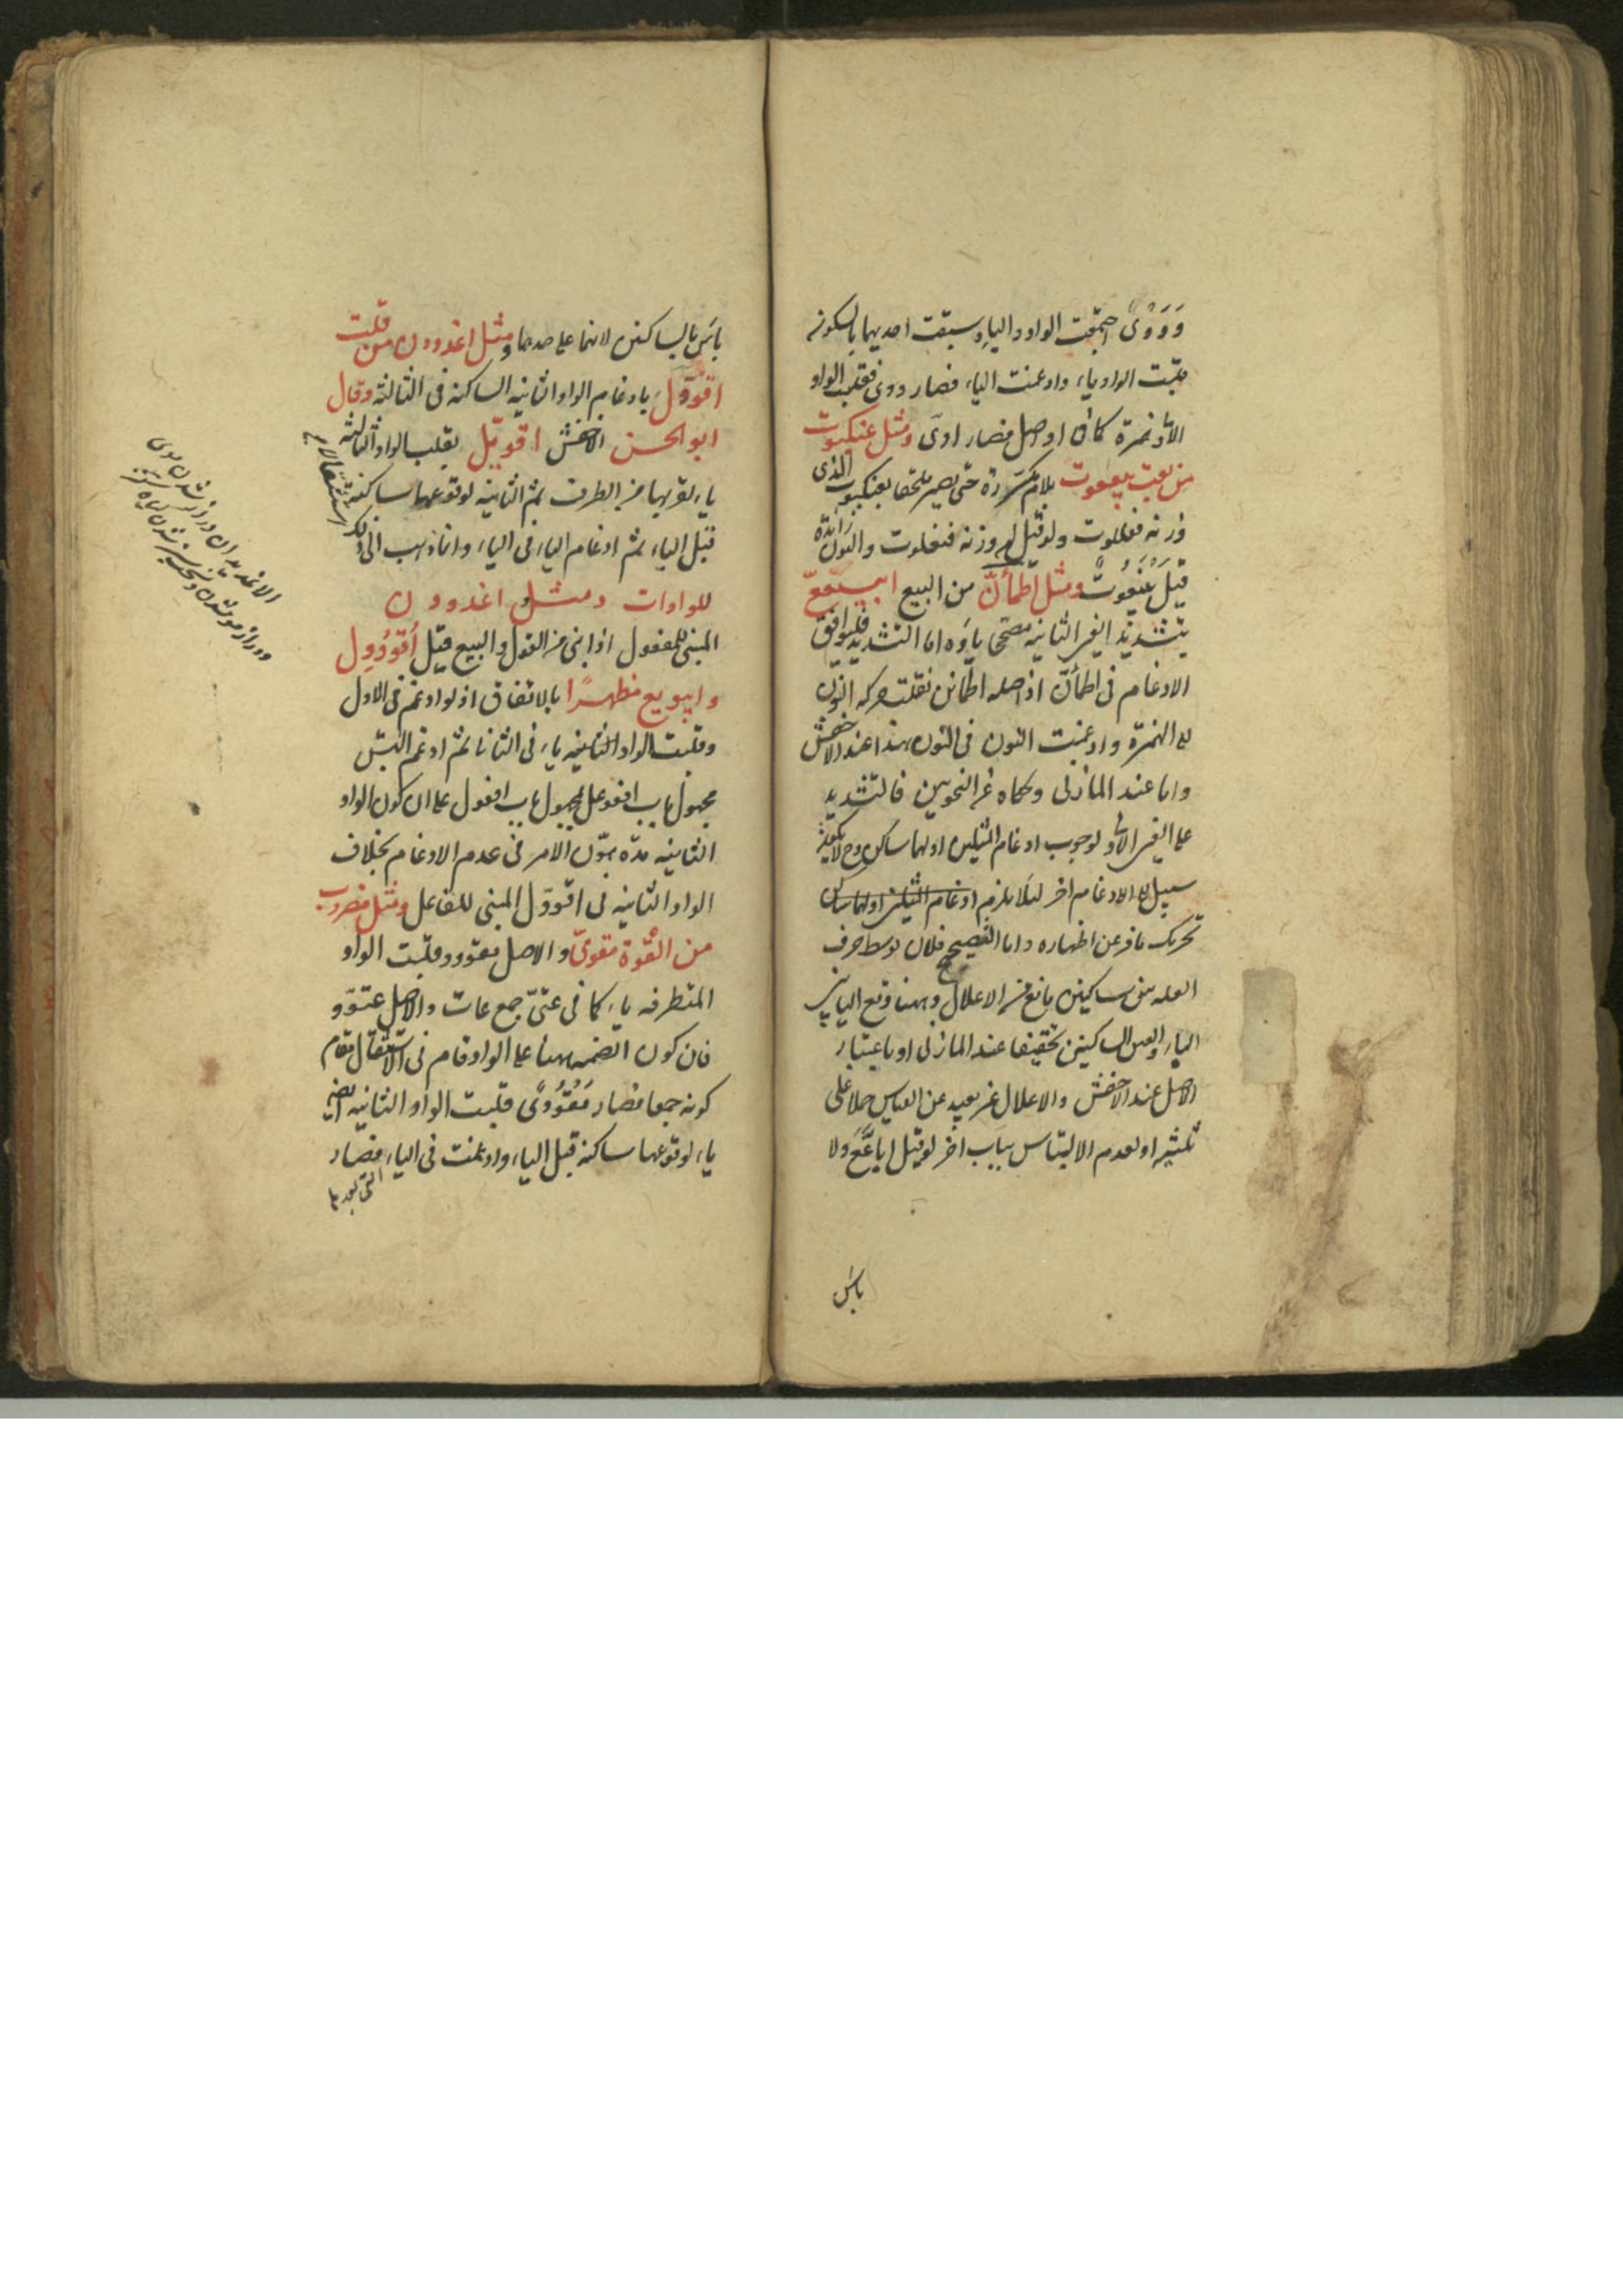 وَوَوْىٌ اجتمعت الواو والياء وسبقت احديهما بالسكون
قلبت الواو ياء وادغمت الياء فصار ووى فقلبت الواو
الاولى همزة كما فى اواصل فصار اوىّ ومثل عنكبوت
من بعت بيععوت بلام مكررة حتى يصير ملحقا بعنكبوت الذى
وزنه فعللوت ولو قيل وزنه فنعلوت والنون زائدة
قيل بَنْيَعُوتٌ ومثل اطمأنّ من البيع ابيععّ
بتشديد العين الثانية مصححا ياؤه اما التشديد فليوافق
الادغام فى اطمأنّ اذ اصله اطمأنن نقلت حركة النون
الى الهمزة وادغمت النون فى النون هذا عند الاخفش
واما عند المازنى وحكاه عن النحويين فالتشديد
على العين الاولى لوجوب ادغام المثلين اولهما ساكن وح لا
سبيل الى الادغام اخر لئلا يلزم ادغام المثلين اولهما ساكن
تحريك ما فر عن اظهاره واما التصحيح فلان توسط حرف
العلة بين ساكنين مانع من الاعلال وههنا وقع الياء بين
الباء والعين الساكنين تحقيقا عند المازنى او باعتبار
الاصل عند الاخفش والاعلال غير بعيد عن القياس حملا على
ثلثيه او لعدم الالتباس بباب اخر لو قيل اباعَّعَ ولا
باس
باس بالساكنين لانهما على حدهما ومثل اغدودن من قلت
اقووّل بادغام الواو الثانية الساكنة فى الثالثة وقال
ابو الحسن الاخفش اقويّل بقلب الواو الثالثة
ياء لقربها من الطرف ثم الثانية لوقوعها ساكنة
قبل الياء ثم ادغام الياء فى الياء وانما ذهب الى ذلك استثقالا
للواوات ومثل اغدودن
المبنى للمفعول اذا بنى من القول والبيع قيل اُقْوُووِل
وابيويع مظهرًا بالاتفاق اذ لو ادغم فى الاول
وقلبت الواو الثانية ياء فى الثانى ثم ادغم التبس
مجهول باب افعوعل لمجهول باب افعول على ان كون الواو
الثانية مدة يهوّن الامر فى عدم الادغام بخلاف
الواو الثانية فى اقووّل المبنى للفاعل ومثل مضروب
من القوة مقوىّ والاصل مقووو قلبت الواو
المتطرفة ياء كما فى عتىّ جمع عات والاصل عتوّو
فان كون الضمة ههنا على الواو قام فى الاستثقال مقام
كونه جمعا فصار مَقْوُوْىٌ قلبت الواو الثانية ايضا
ياء لوقوعها ساكنة قبل الياء وادغمت فى الياء فصار
التى بعدها